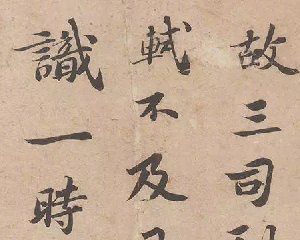 故三司
軾不及
識一時